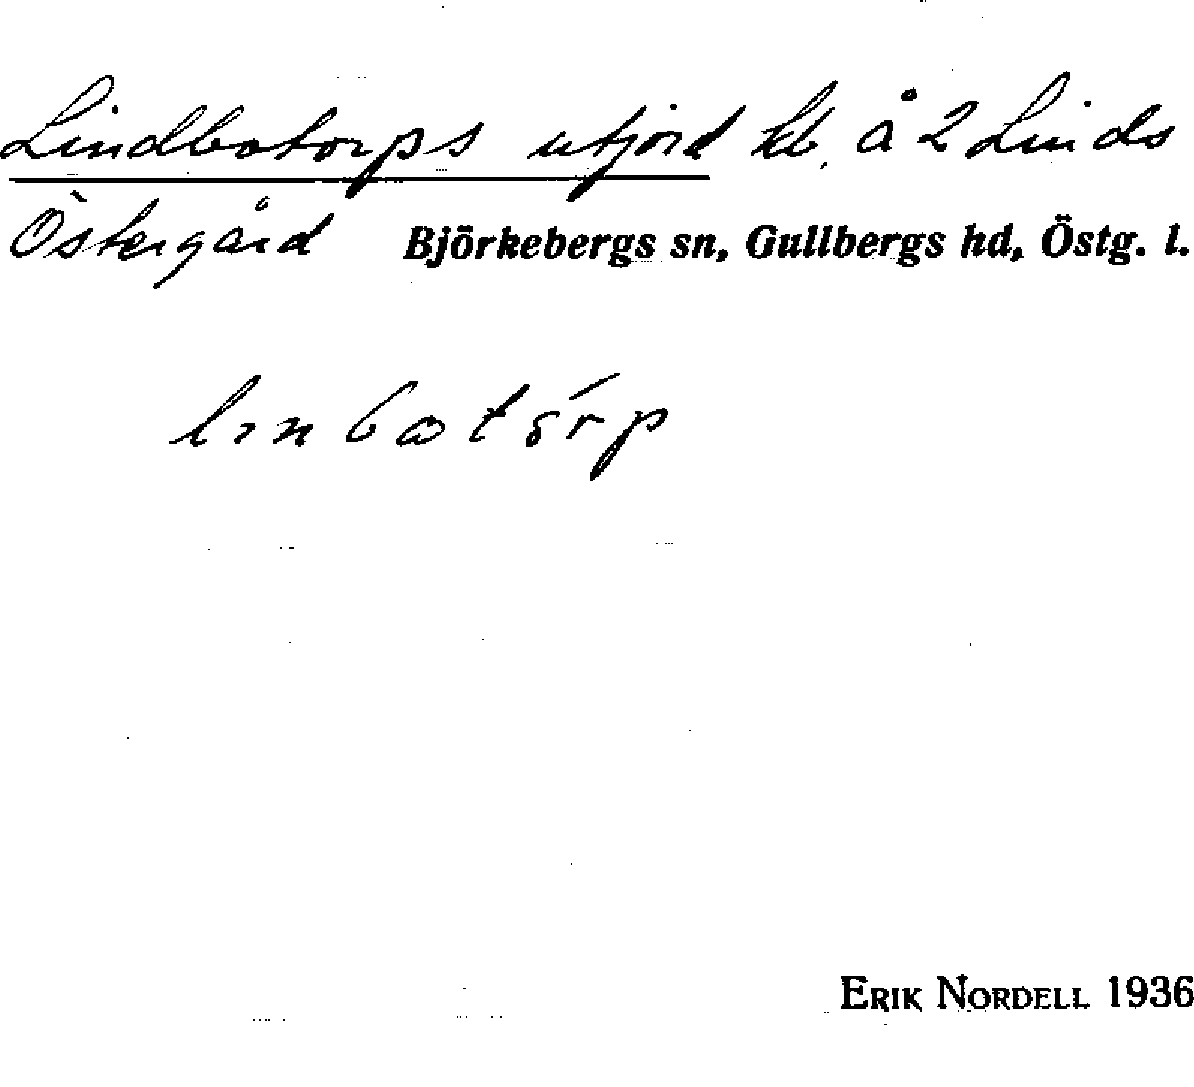 Lindbotorps utjord lb. å 2 Linds
Östergård Björkebergs sn, Gullbergs hd, Östg. l.
ERIK NORDELL 1936